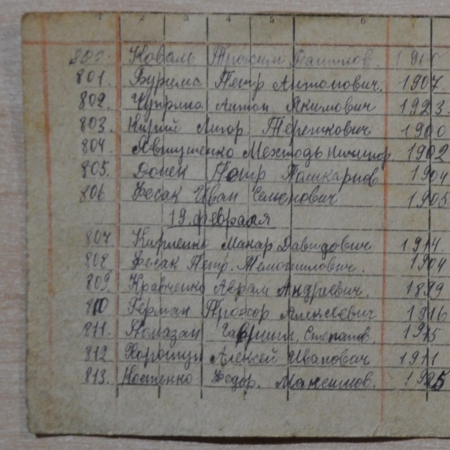 800. Коваль Трохим Данилов. 1900
801. Бурима Петр Антонович. 1907
802. Чуприна Антон Якимович 1923
803. Кирий Лигор. Терешкович 1900
804 Явтушенко Мехтодь Никифор 1902
805. Донец Петр Пашкарпов 1904
806 Бесак Иван Семенович 1905
19 февраля
807. Кириленко Макар Давидович 1914
808. Бесак Петр. 1904
809 Кравченко Абрам Андреевич. 1899
810 Герман Прохор Алексеевич 1916
811. Гавриил, Степанов. 1915
812 Хорошун Алексей Иванович 1911
813. Костенко Федор. Максимов. 1925